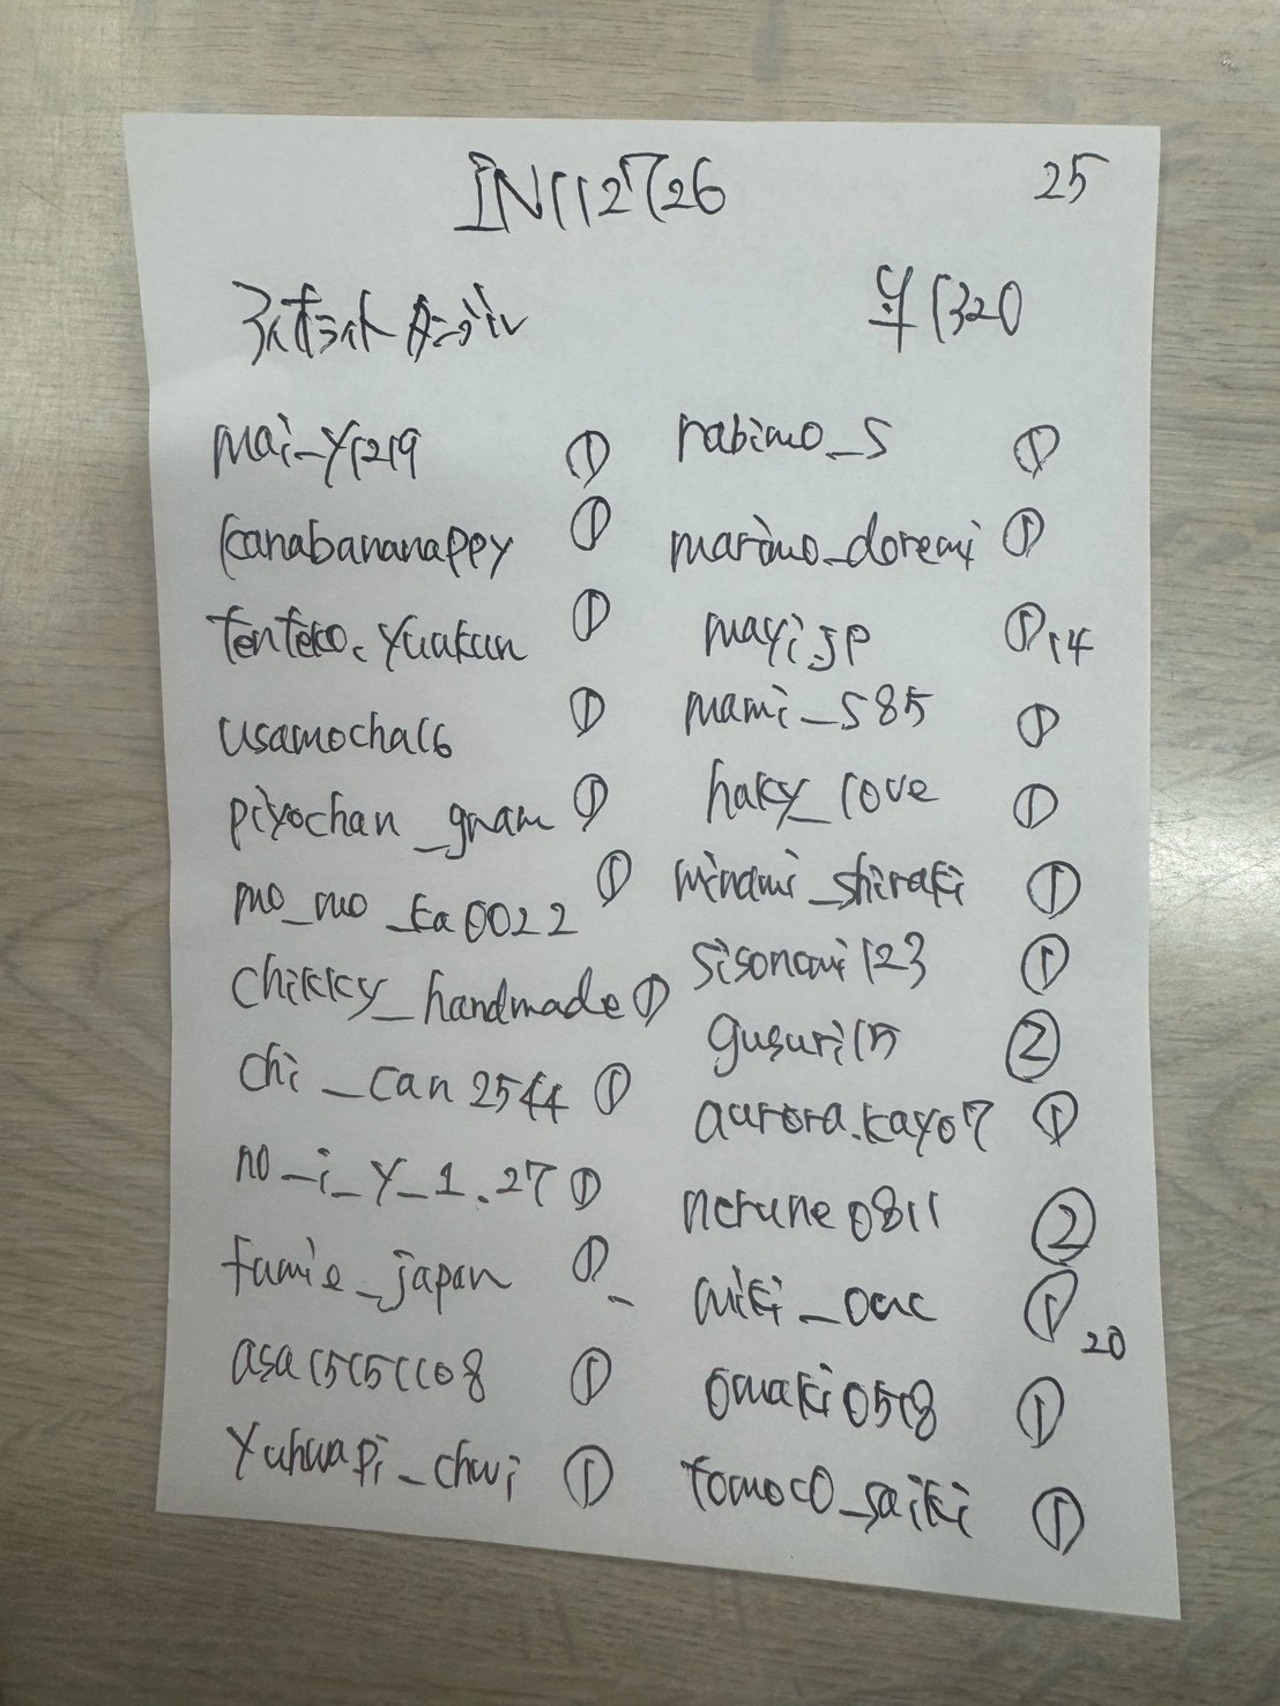 IN112726 25
単1320
mai_y1219 ①
kanabananappy ①
tenteko.yuukun ①
usamocha16 ①
piyochan_gnam ①
mo_mo_ka0022 ①
chikky_handmade ①
chi_can2544 ①
no_i_y_1.27 ①
fumie_japan ①
asa15151108 ①
yuhuapi_chui ①
rabimo_s ①
marimo_doremi ①
mayi.jp ① 14
mami_s85 ①
haky_love ①
minami_shiraki ①
sisonomi123 ①
gusuri15 ②
aurora.kayo7 ①
nerune0811 ②
miki_ouc ① 20
omaki0518 ①
tomoco_saiki ①